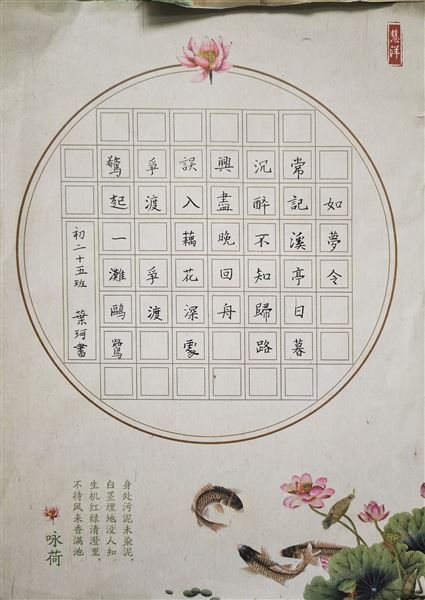 慧洋
如夢令
常記溪亭日暮
沉醉不知歸路
興盡晚回舟
誤入藕花深處
爭渡 爭渡
驚起一灘鷗鷺
初二十五班 葉珂書
身处污泥未染泥,
白茎埋地没人知
生机红绿清澄里,
不待风来香满池
咏荷